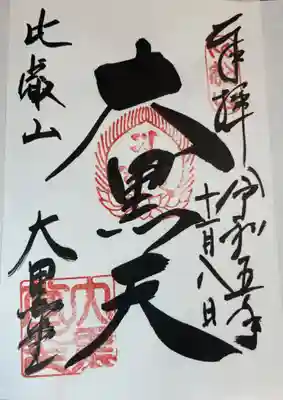 奉拝
令和五年
十一月八日
大黒天
比叡山
大黒堂